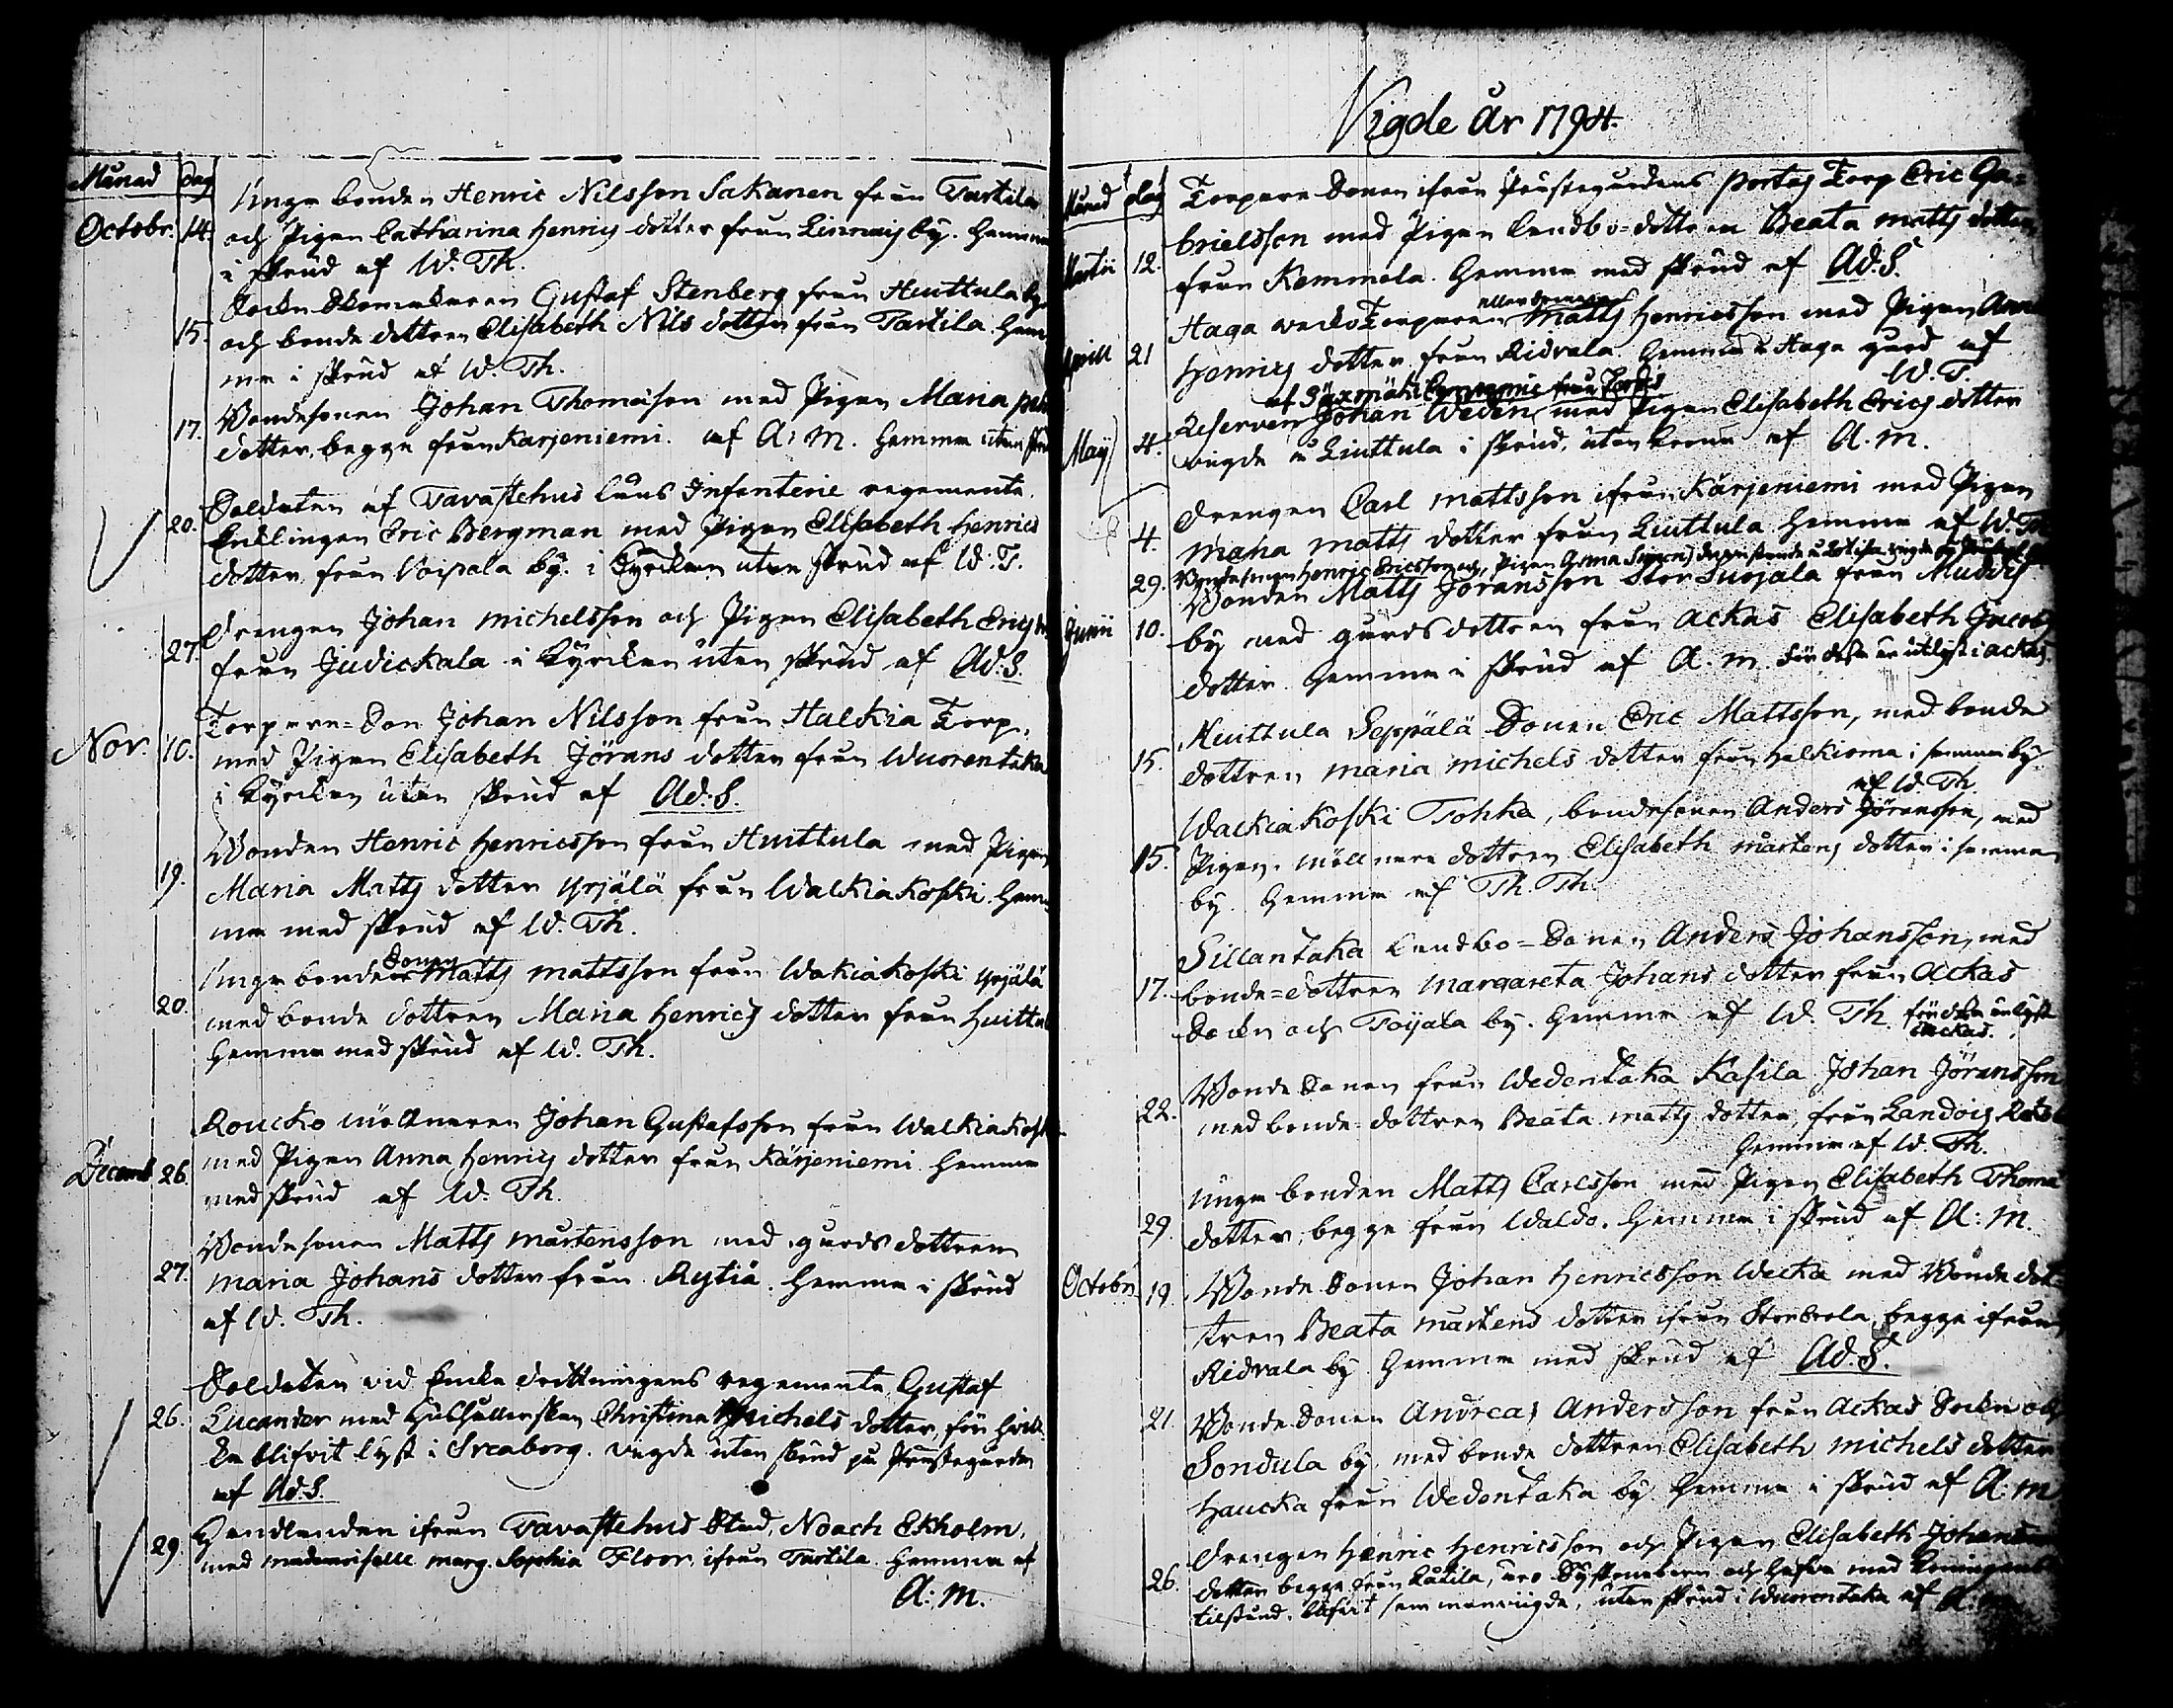 Månad Dag
Octobr. 14. Unga bonden Henric Nilsson Sakanen från Tartila
och Pigan Catharina Henrics dotter från Linnais by. Hemma
i skrud af W. Th.
15. Sockn Skomakaren Gustaf Stenberg från Huittula by
och bonde dottren Elisabeth Nils dotter från Tartila. Hem-
ma i skrud af W. Th.
17. Bondesonen Johan Thomasson med Pigan Maria
dotter, begge från Karjeniemi. af A: M. Hemma utan
20. Soldaten af Tavastehus läns Infanterie regemente
Eric Bergman med Pigan Elisabeth Henrics
dotter från Voipala by. i Kyrckan utan skrud af W: T.
27. Drengen Johan Michelsson och Pigan Elisabeth Erics
från Judickala i Kyrckan utan skrud af Ad. S.
Nov. 10. Torpare-Son Johan Nilsson från Halkia Torp,
med Pigan Elisabeth Jörans dotter från Wuorentaka
i Kyrckan utan skrud af Ad: S.
19. Bonden Henric Henricsson från Huittula med Pigan
Maria Matts dotter Yrjälä från Walkiakoski. Hem-
ma med skrud af W. Th.
Sonen
20. Unga bonde Matts Mattsson från Wakiakoski Yrjälä
med bonde dottren Maria Henrics dotter från Huittul
Hemma med skrud af W. Th.
Roucko möllnaren Johan Gustafsson från Walkiakoski
Decemb 26. med Pigan Anna Henrics dotter från Kärjeniemi. Hemma
med skrud af W. Th.
Bondesonen Matts Mårtensson med gårds dottren
27. Maria Johans dotter från Rytiä. Hemma i skrud
af W. Th.
Soldaten vid Encke Drottningens regemente, Gustaf
26. Lucander med Christina Michels dotter, för hvil-
ka blifvit lyst i Sveaborg. vigde utan skrud på Prästegården
af Ad. S.
29. Handlanden ifrån Tavastehus Stad, Noach Ekholm,
med mademoiselle Marg. Sophia Floor, ifrån Tartila. Hemma af
A: M.
Vigde År 1794.
Månad dag
Torpare Sonen ifrån Prästegårdens Portas Torp Eric Ga-
Martii 12. brielsson med Pigan Landbo-dottren Beata Matts dotter
från Kemmola. Hemma med skrud af Ad: S.
Haga Torparen Matts Henricsson med Pigan Anna
April 21 Henrics dotter från Ridvala. Hemma å Haga gård af
W. T.
af Säxmäki Compagnie från
Maij 4. Reserven Johan Weden, med Pigan Elisabeth Erics dotter
vigde å Liuttula i skrud, utan krona af A. M.
Drengen Carl Mattsson ifrån Kärjeniemi med Pigan
4. Maria Matts dotter från Liuttula. Hemma af W. Th
29. Bonde Henric Ericsson och Pigan Anna Simons
Bonden Matts Jöransson Stor Suojala från
Junii 10. by med gårds dottren från Ackas Elisabeth Jacobs
dotter. Hemma i skrud af A. M. för dem är utlyst i Ackas.
Huittula Seppälä Sonen Eric Mattsson, med bonde
15. dottren Maria Michels dotter från Halkioma i samma by
af W. Th.
Walkiakoski Tohka, bondesonen Anders Jöransson, med
15. Pigan, möllnare dottren Elisabeth Mårtens dotter i samma
by. Hemma af Th. Th.
Sillantaka Landbo-Sonen Anders Johansson, med
17. bonde-dottren Margareta Johans dotter från Ackas
Sockn och Toijala by. Hemma af W. Th. för dem är lyst
i Ackas.
Bonde Sonen från Wedentaka Kasila Johan Jöransson
22. med bonde-dottren Beata Matts dotter, från Landois
Hemma af W. Th.
Unga bonden Matts Carlsson med Pigan Elisabeth Thomæ
29. dotter, begge från Waldo. Hemma i skrud af A: M.
Octobr. 19. Bonde Sonen Johan Henricsson Wecka med Bonde dot-
tren Beata Mårtens dotter ifrån begge ifrån
Ridvala by. Hemma med skrud af Ad. S.
21. Bonde Sonen Andreas Andersson från Ackas Sockn och
Sondula by, med bonde dottren Elisabeth Michels dotter
Haucka från Wedentaka by. Hemma i skrud af A: M
Drengen Henric Henricsson och Pigan Elisabeth Johans
26. dotter begge från Låtila, äro Syskonebarn och hafva med Konungens
tilstånd, blifvit sammanvigde, utan skrud i Wuorentaka af A. M.